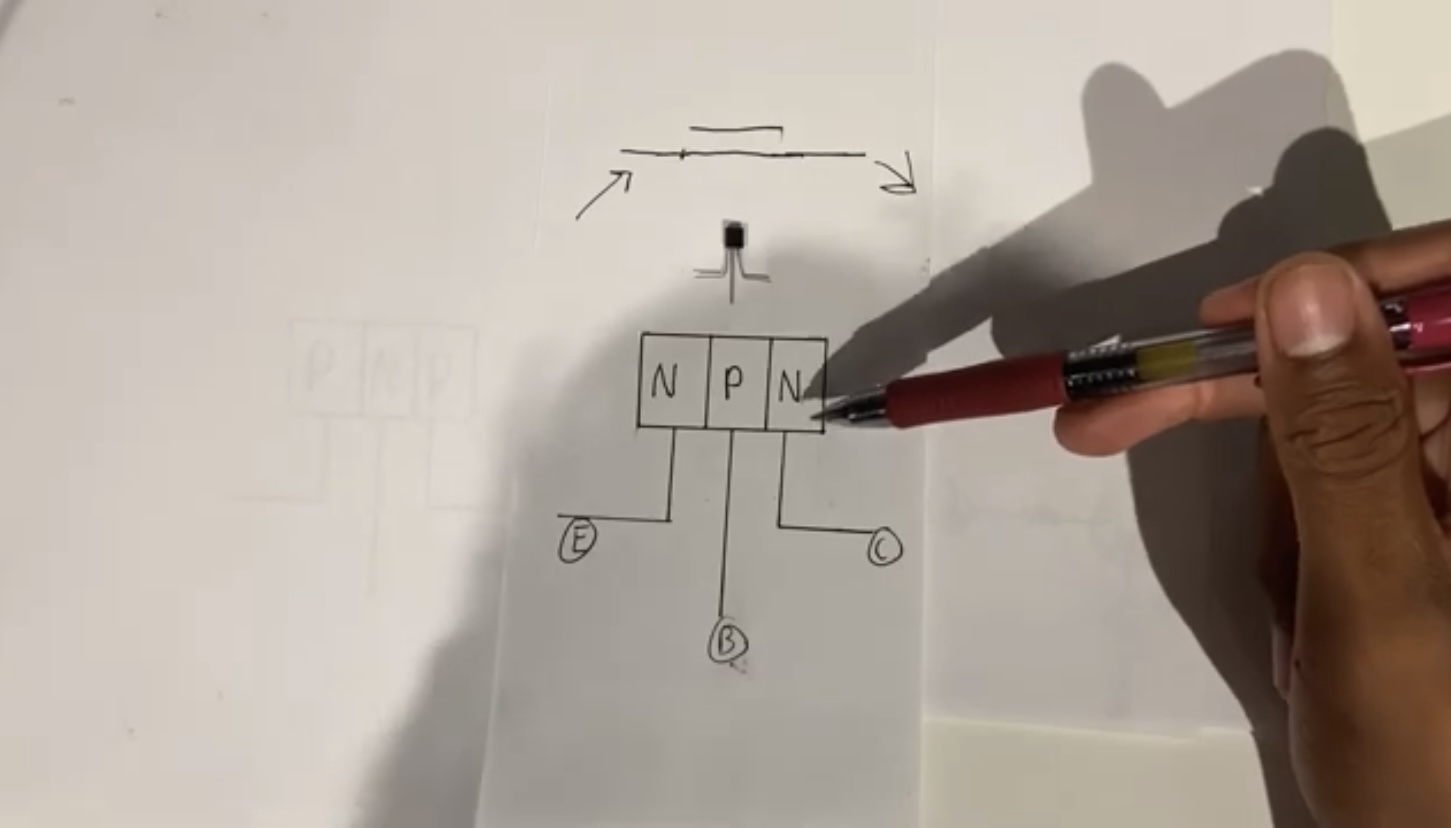 P N P
N P N
E
C
B